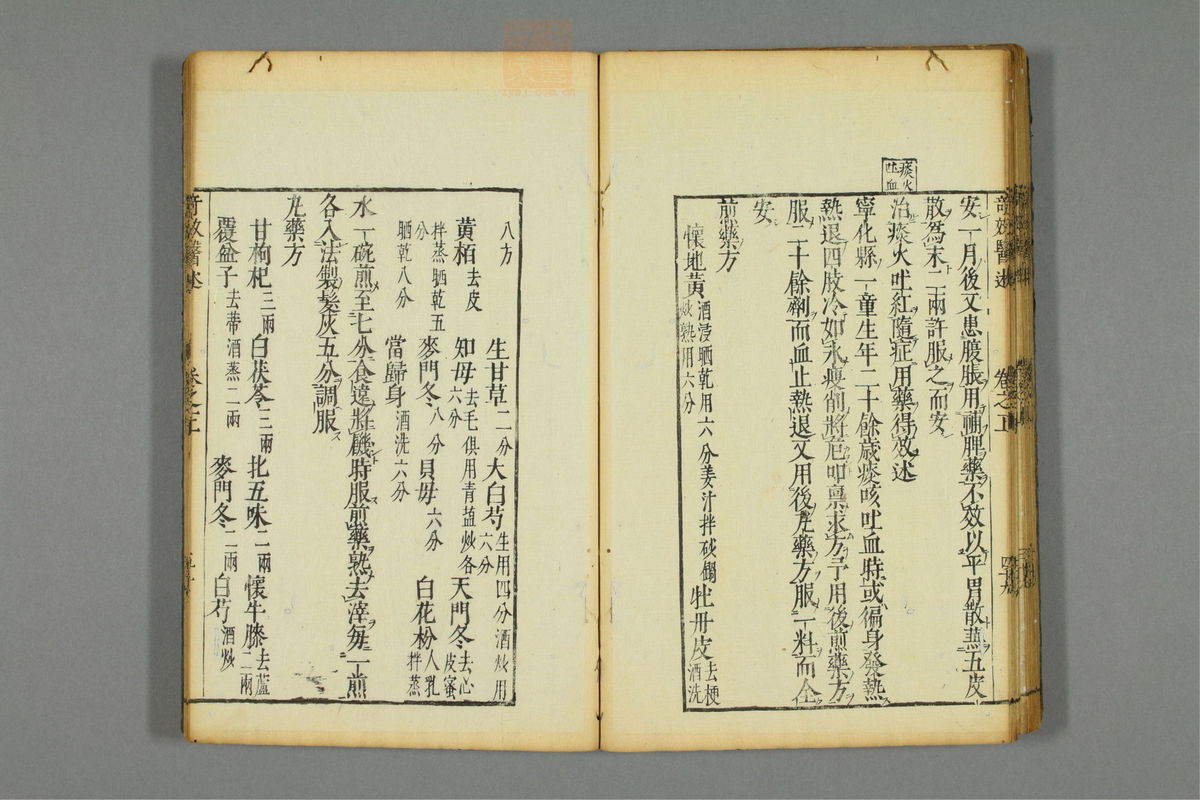 痰火
吐血
安一月後又患腹脹用補脾藥不效以平胃散蒸五皮
散爲末二兩許服之而安
治痰火吐紅隨症用藥得效述
寧化縣一童生年二十餘歲痰咳吐血時或徧身發熱
熱退四肢冷如氷瘦削將危叩禀求方予用後煎藥方
服二十餘劑而血止熱退又用後尤藥方服一料而全
安
煎藥方
懷地黃酒浸晒乾用六分姜汁拌砂攔炒熟用六分 牡丹皮去梗酒洗
八方 生甘草二分 大白芍生用四分酒炒用六分
黃栢去皮 知母去毛六分俱用青塩炒各 天門冬去心皮蜜
拌蒸晒乾五分 麥門冬八分 貝母六分 白花粉人乳拌蒸
晒乾八分 當歸身酒洗六分
水一碗煎至七分食遠將饑時服煎藥熟去滓每一煎
各入法製髮灰五分調服
丸藥方
甘枸杞三兩 白茯苓三兩 北五味二兩 懷牛膝去蘆二兩
覆盆子去蒂酒蒸二兩 麥門冬二兩 白芍酒炒
奇效醫述 卷之上